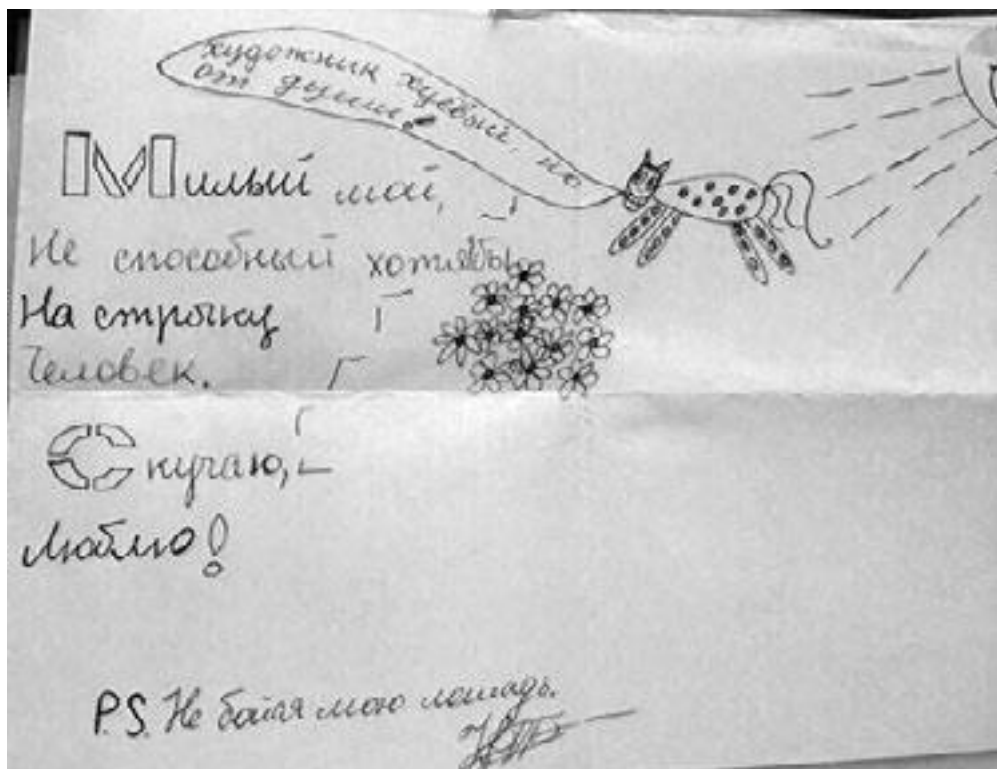 художник хуевый, но
от души!
Милый мой,
Не способный хотябы
На строчку
Человек.
Скучаю,
Люблю!
P.S. Не бойся мою лошадь.